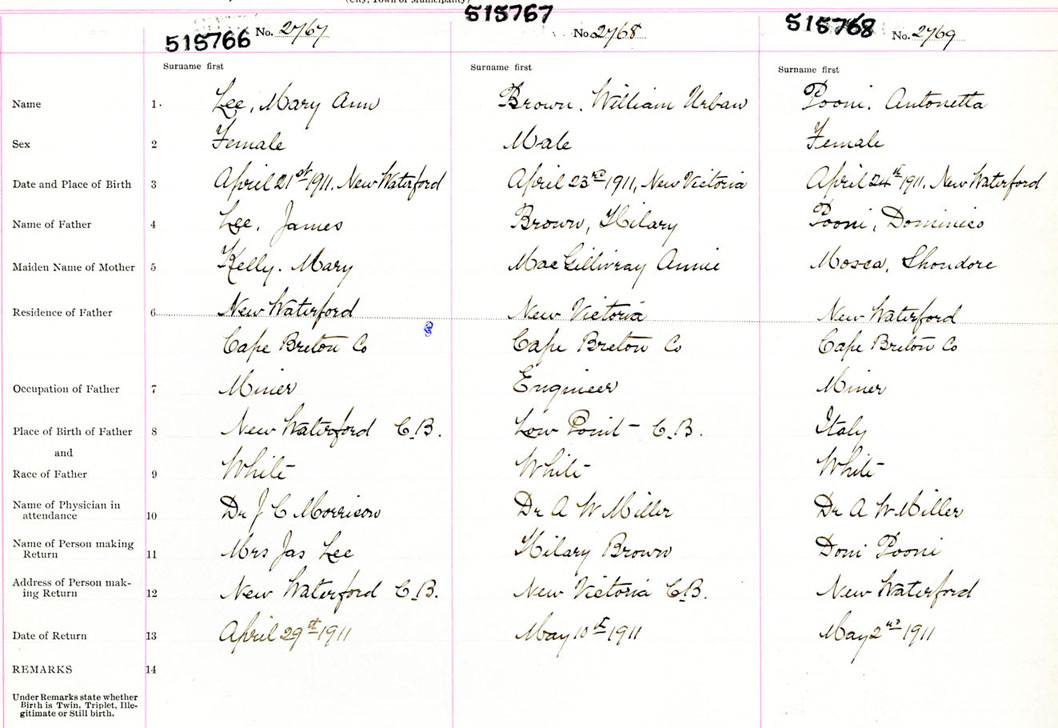 (City, Town or Municipality)
515766 No. 2767 515767 No 2768 515768 No. 2769
Surname first Surname first Surname first
Name 1. Lee, Mary Ann Brown, William Urban Pooni, Antonetta
Sex 2 Female Male Female
Date and Place of Birth 3 April 21st 1911, New Waterford April 23rd 1911, New Victoria April 24th 1911, New Waterford
Name of Father 4 Lee, James Brown, Hilary Pooni, Dominico
Maiden Name of Mother 5 Kelly, Mary MacGillivray Annie Mosca,
Residence of Father 6 New Waterford New Victoria New Waterford
Cape Breton Co Cape Breton Co Cape Breton Co
Occupation of Father 7 Miner Engineer Miner
Place of Birth of Father 8 New Waterford C.B. Low Point - C.B. Italy
and
Race of Father 9 White White White
Name of Physician in
attendance 10 Dr J C Morrison Dr A W Miller Dr A W Miller
Name of Person making
Return 11 Mrs Jas Lee Hilary Brown Doni Pooni
Address of Person mak-
ing Return 12 New Waterford C.B. New Victoria C.B. New Waterford
Date of Return 13 April 29th 1911 May 10th 1911 May 2nd 1911
REMARKS 14
Under Remarks state whether
Birth is Twin, Triplet, Ille-
gitimate or Still birth.